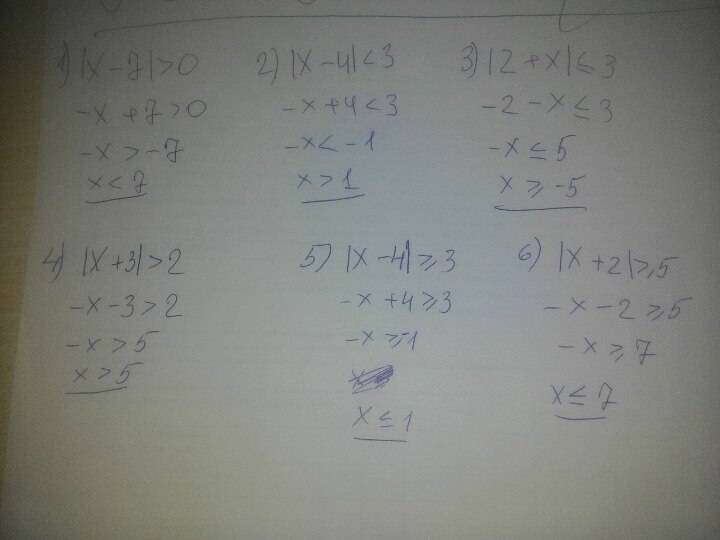 1) |x-7|>0
-x+7>0
-x>-7
x<7
2) |x-4|<3
-x+4<3
-x<-1
x>1
3) |2+x|≤3
-2-x≤3
-x≤5
x≥-5
4) |x+3|>2
-x-3>2
-x>5
x>5
5) |x-4|≥3
-x+4≥3
-x≥-1
x≤1
6) |x+2|≥5
-x-2≥5
-x≥7
x≤7